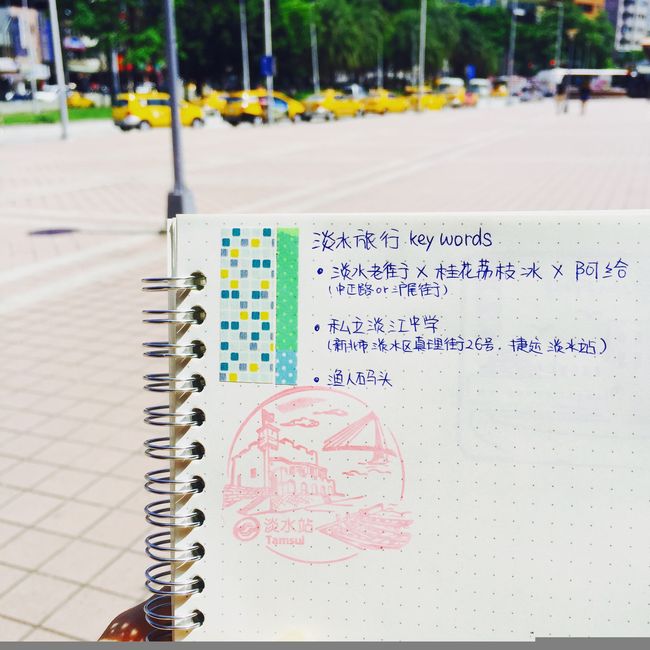 淡水旅行 key words
• 淡水老街 × 桂花荔枝冰 × 阿给
(中正路 or 沪尾街)
• 私立淡江中学
(新北市淡水区真理街26号, 捷运淡水站)
• 渔人码头
淡水站
Tamsui